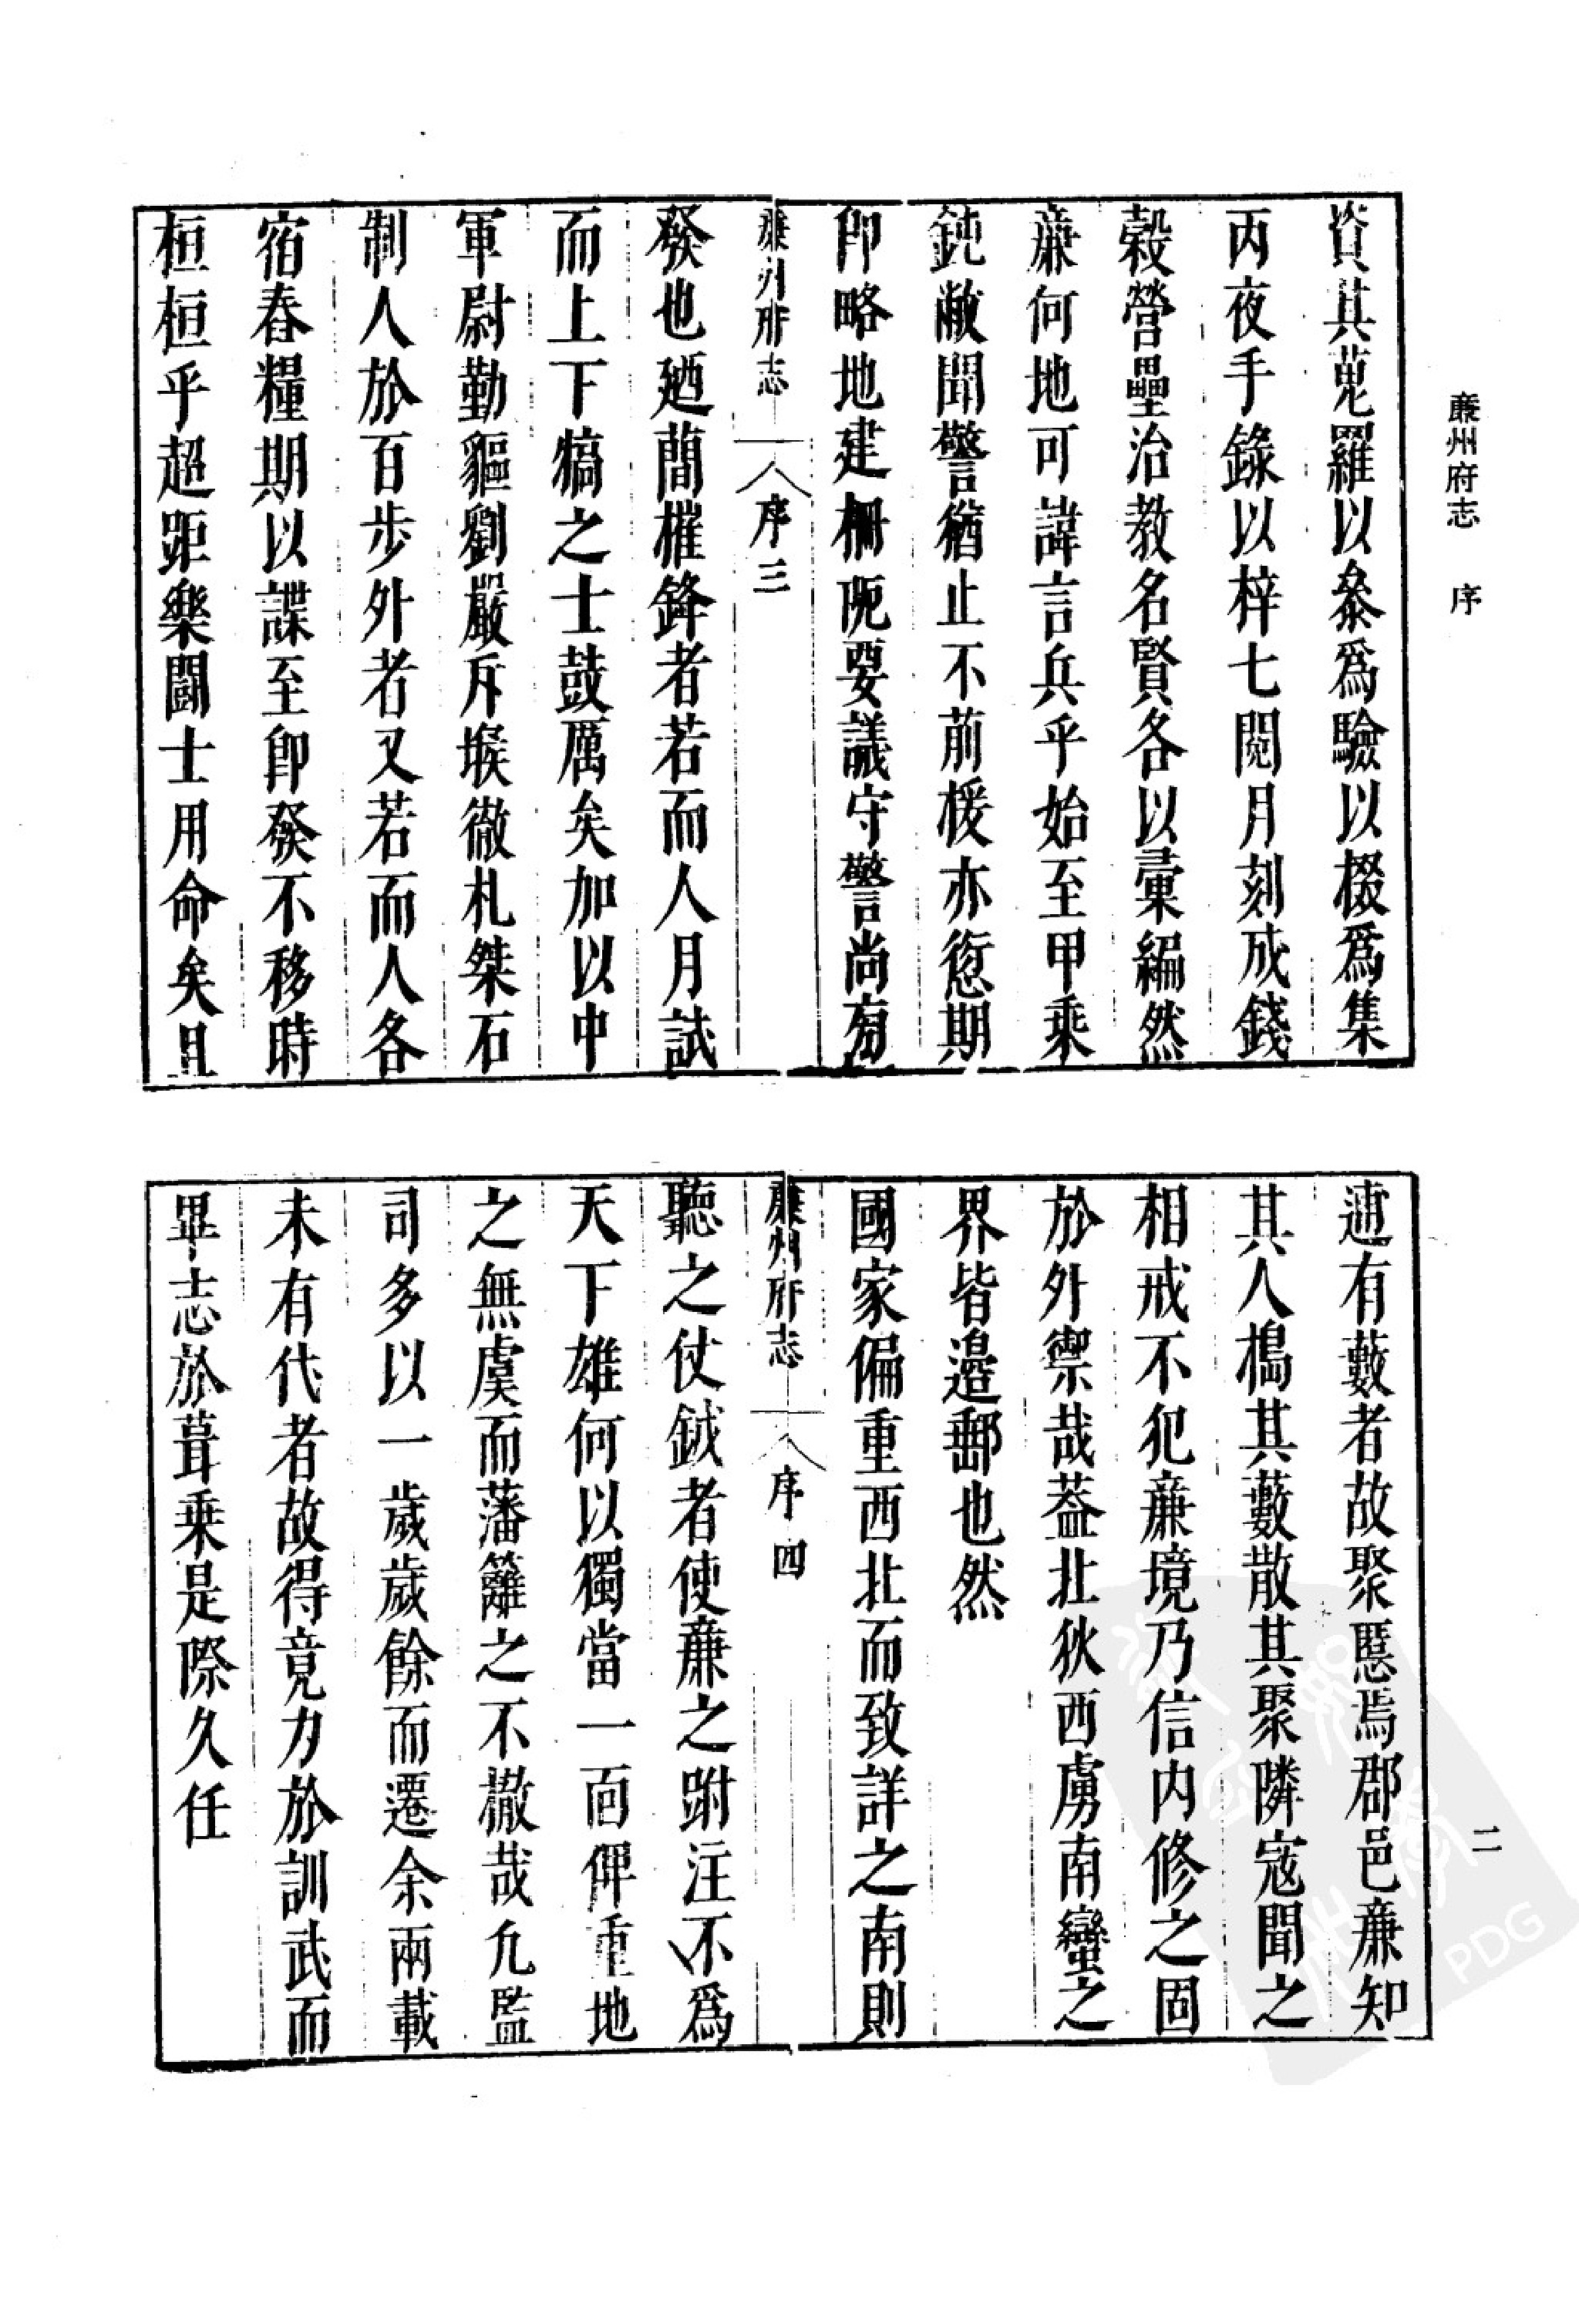 廉州府志　序
資其蒐羅以叅爲驗以棳爲集
丙夜手錄以梓七閱月刻成錢
穀營壘治教名賢各以彙編然
亷何地可諱言兵乎始至甲乘
鈍敝聞警猶止不前援亦愆期
卽略地建柵阨要議守警尚有
廉州府志　序三
發也廼蕳槯鋒者若而人月試
而上下犒之士鼓厲矣加以中
軍尉勤貙劉嚴斥堠徹札桀石
制人於百步外者又若而人各
宿舂糧期以諜至卽發不移時
桓桓乎超距樂鬬士用命矣且
逋有藪者故聚慝焉郡邑亷知
其人搗其藪散其聚隣寇聞之
相戒不犯亷境乃信内修之固
於外禦哉葢北狄西虜南蠻之
界皆邉鄙也然
國家偏重西北而致詳之南則
廉州府志　序四
聽之仗鉞者使亷之跗注不爲
天下雄何以獨當一面俾重地
之無虞而藩籬之不撤哉凢監
司多以一歲歲餘而遷余兩載
未有代者故得竟力於訓武而
畢志於葺乗是際久任
二
PDG